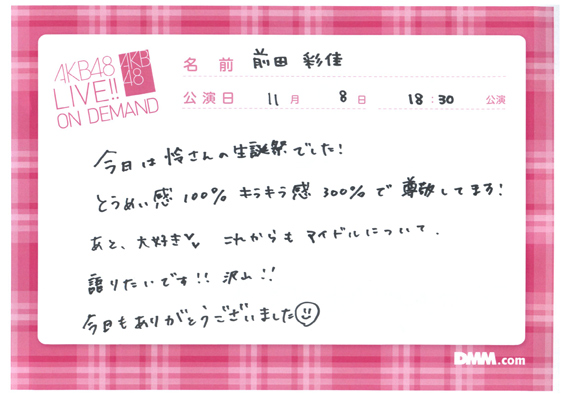 AKB48
LIVE!!
ON DEMAND
AKB
48
名 前 前田 彩佳
公演日 11月 8日 18:30 公演
今日は怜さんの生誕祭でした!
とうめい感100% キラキラ感300%で尊敬してます!
あと、大好き♥♥ これからもアイドルについて、
語りたいです!! 沢山!!
今日もありがとうございました☺
DMM.com